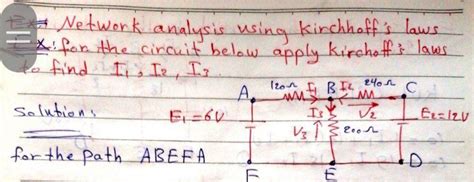 Ex: Network analysis using Kirchhoff's laws
Ex: for the circuit below apply kirchoff's laws
to find I1, I2, I3
A 120Ω I1 B I2 240Ω C
Solution: E1=6V I3 V2 E2=12V
V3 200Ω
for the path ABEFA
F E D